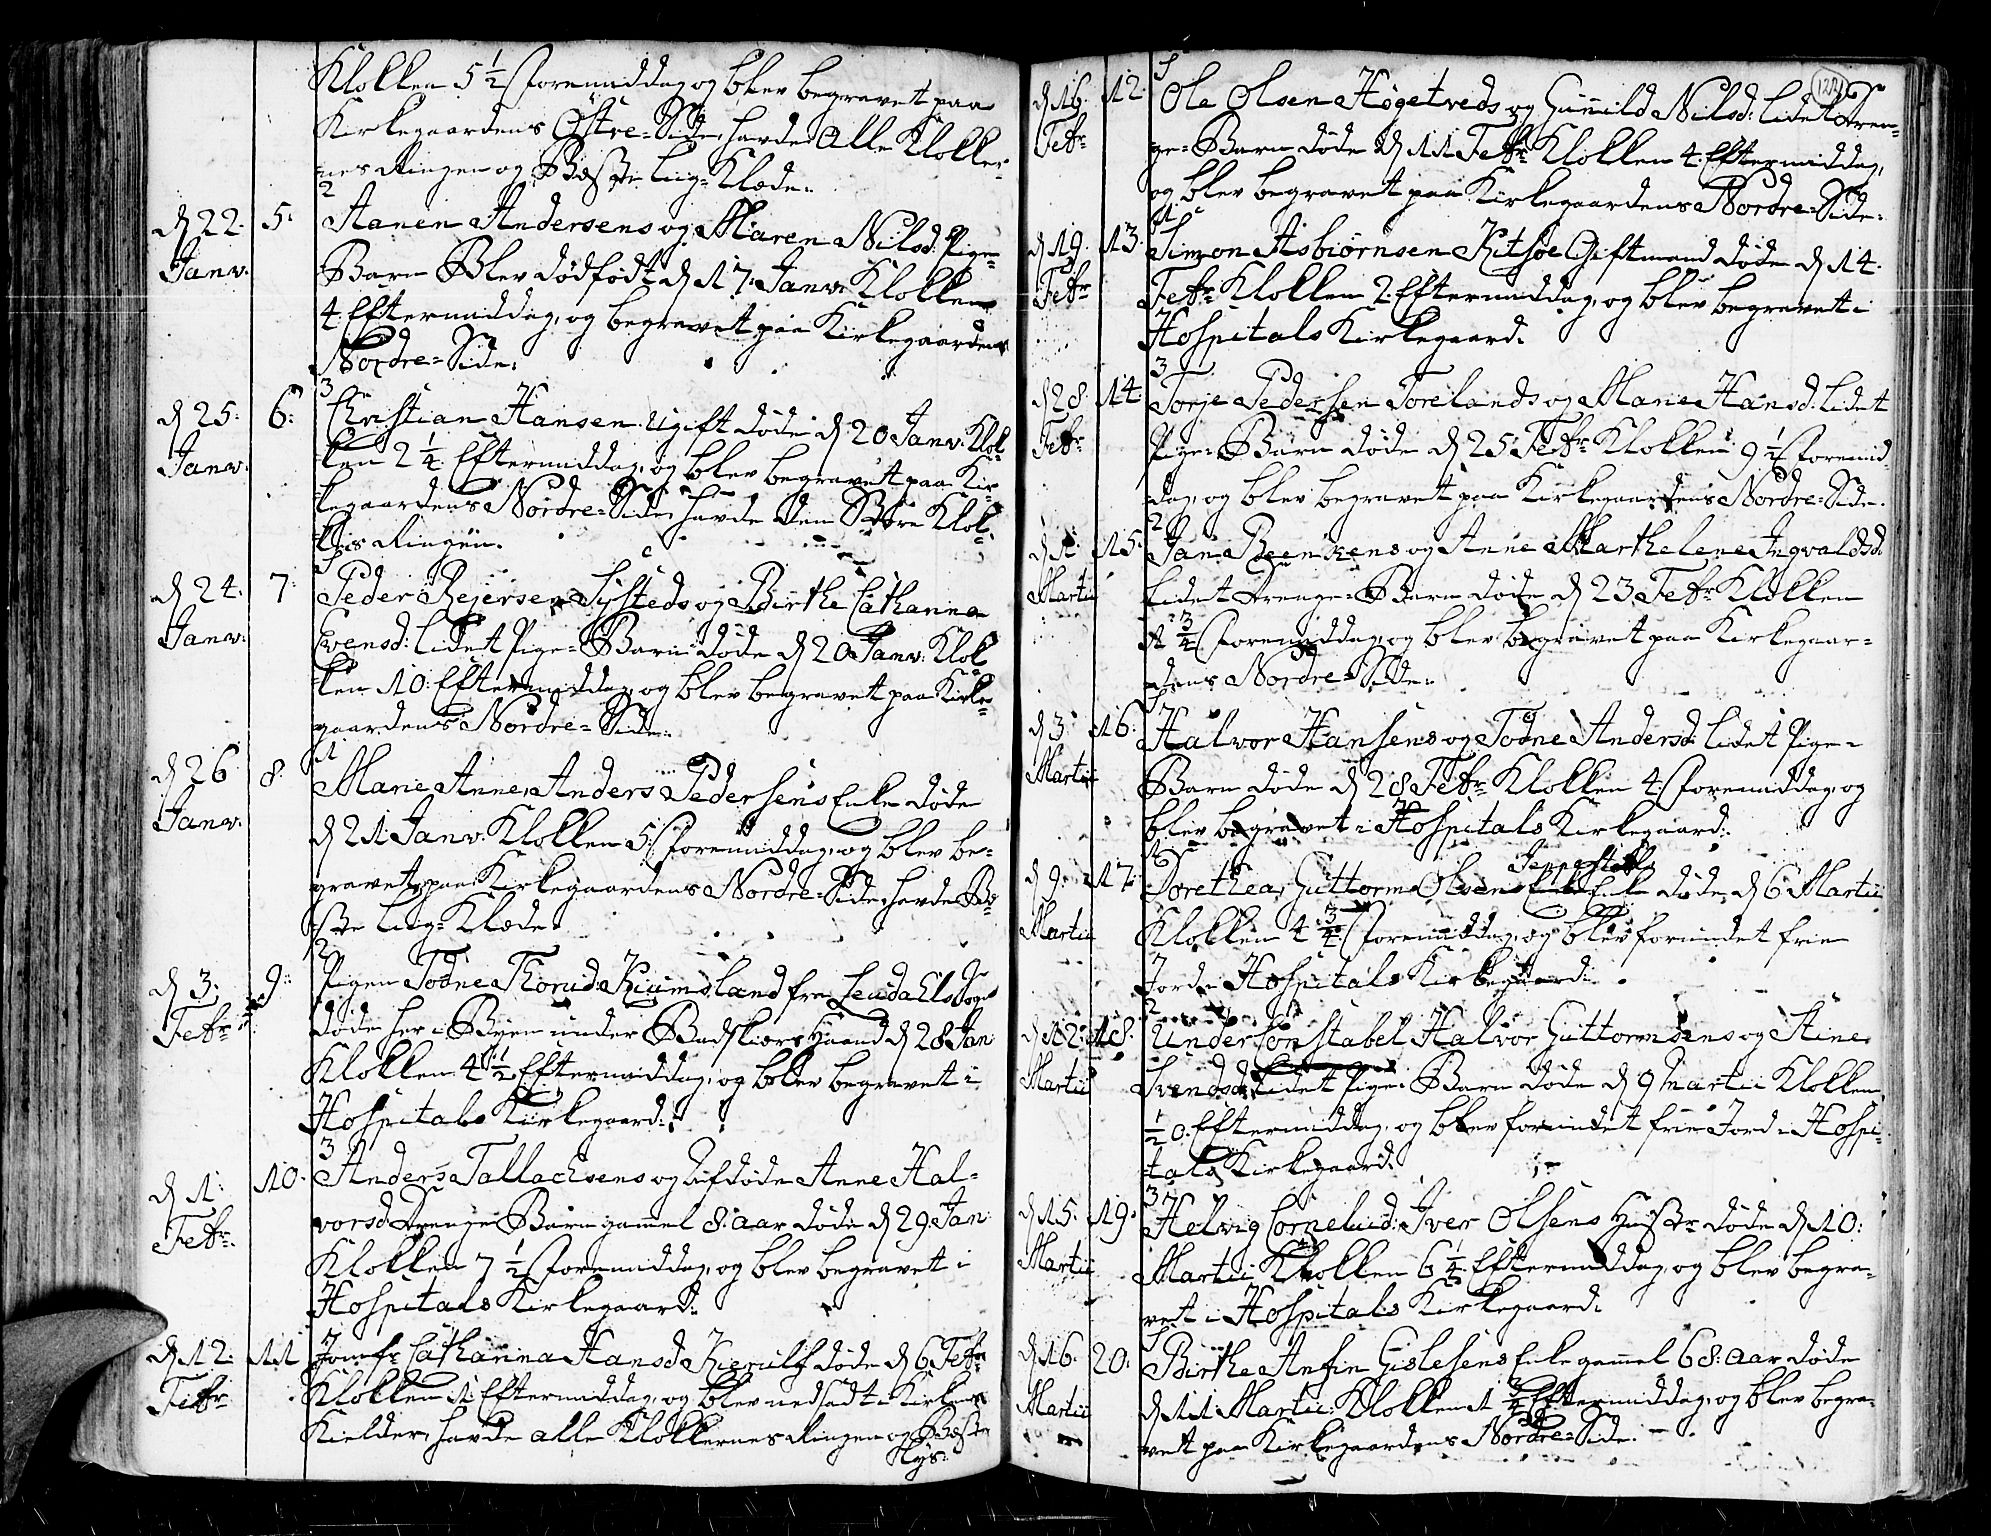 Klokken 5 1/2 Formiddag og blev begravet paa
Kirkegaardens Østre-Side, havde Alle Klokker-
nes Ringen og Beste Liig-Klæde.
2
d 22. 5. Aanen Andersens og Maren Nilsd: Pige-
Janv. Barn Blev dødfødt d 17. Janv. Klokken
4. Eftermiddag, og begravet paa Kirkegaardens
Nordre-Side.
3
d 25. 6. Christian Hansen Ugift døde d 20 Janv. Klok-
Janv. ken 2 1/4 Eftermiddag, og blev begravet paa Kir-
kegaardens Nordre-Side, havde den Større Klok-
Ringen.
d 24. 7. Peder Rejersen og Birthe Cathanna
Janv. Evensd: lidet Pige-Barn døde d 20 Janv. Klok
ken 10. Eftermiddag, og blev begravet paa Kirke-
gaardens Nordre-Side.
1
d 26 8. Marie Anne, Anders Pedersens Enke døde
Janv. d 21. Janv. Klokken 5. Formiddag, og blev be-
gravet, paa Kirkegaardens Nordre-Side, havde Be-
ste Liig-Klæde.
2
d 3. 9. Pigen Todne Thorud: fra Sogn
Febr. døde her i Byen under Badskiers Haand d 28 Jan:
Klokken 4 1/2 Eftermiddag, og blev begravet i
Hospitals Kirkegaard.
3
d 1. 10. Anders Tallachsens og Afdøde Anne Hal-
Febr. vorsd: Drenge Barn gammel 8. aar døde d 29. Jan:
Klokken 7 1/2 Formiddag, og blev begravet i
Hospitals Kirkegaard.
d 12. 11 Jomfr: Cathanna Hansd: Kierulf døde d 6. Febr
Febr Klokken 1. Eftermiddag, og blev nedsadt i Kirkens
Kielder, havde alle Klokkernes Ringen og Beste
Lys.
122
d 16. 12. Ole Olsen Høgetveds og Gunild Nilsd: lidet Dren-
Febr ge-Barn døde d 11 Febr Klokken 4. Eftermiddag,
og blev begravet paa Kirkegaardens Nordre-Side.
1
d 19. 13. Simon Asbiørnsen Giftmand døde d 14.
Febr Febr Klokken 2. Eftermiddag, og blev begravet i
Hospitals Kirkegaard.
3
d 28. 14. Torje Pedersen Torelands og Marie Hansd: lidet
Febr Pige-Barn døde d 25. Febr Klokken 9 1/2 Formid-
dag, og blev begravet paa Kirkegaardens Nordre-Side.
2
d 1. 15. Jan og Anne Marthelene Ingvaldsd:
Martii Lidet Drenge-Barn døde d 23. Febr Klokken
1 3/4 Formiddag, og blev begravet paa Kirkegaar-
dens Nordre-Side.
d 3. 16. Halvor Hansens og Todne Andersd: lidet Pige-
Martii Barn døde d 28 Febr Klokken 4. Formiddag, og
blev begravet i Hospitals Kirkegaard.
1
d 9. 17. Dorethea, Guttorm Olsens Enke døde, d 6 Martii
Martii Klokken 4 3/4 Formiddag, og blev forundet frie
Jord i Hospitals Kirkegaard.
2
d 12. 18. Under Constabel Halvor Guttormsens og Stine
Martii Svendsd: lidet Pige-Barn døde d 9 Martii Klokken
1/2 0. Eftermiddag, og blev forundet frie Jord i Hospi-
tals Kirkegaard.
3
d 15. 19. Helvig Corneliud: Iver Olsens Hustr døde d 10.
Martii Martii Klokken 6 1/4 Eftermiddag, og blev begra-
vet i Hospitals Kirkegaard.
d 16. 20. Birthe Anfin Gislesens Enke gammel 68. aar døde
Martii d 11 Martii Klokken 1 3/4 Eftermiddag, og blev begra-
vet paa Kirkegaardens Nordre-Side.